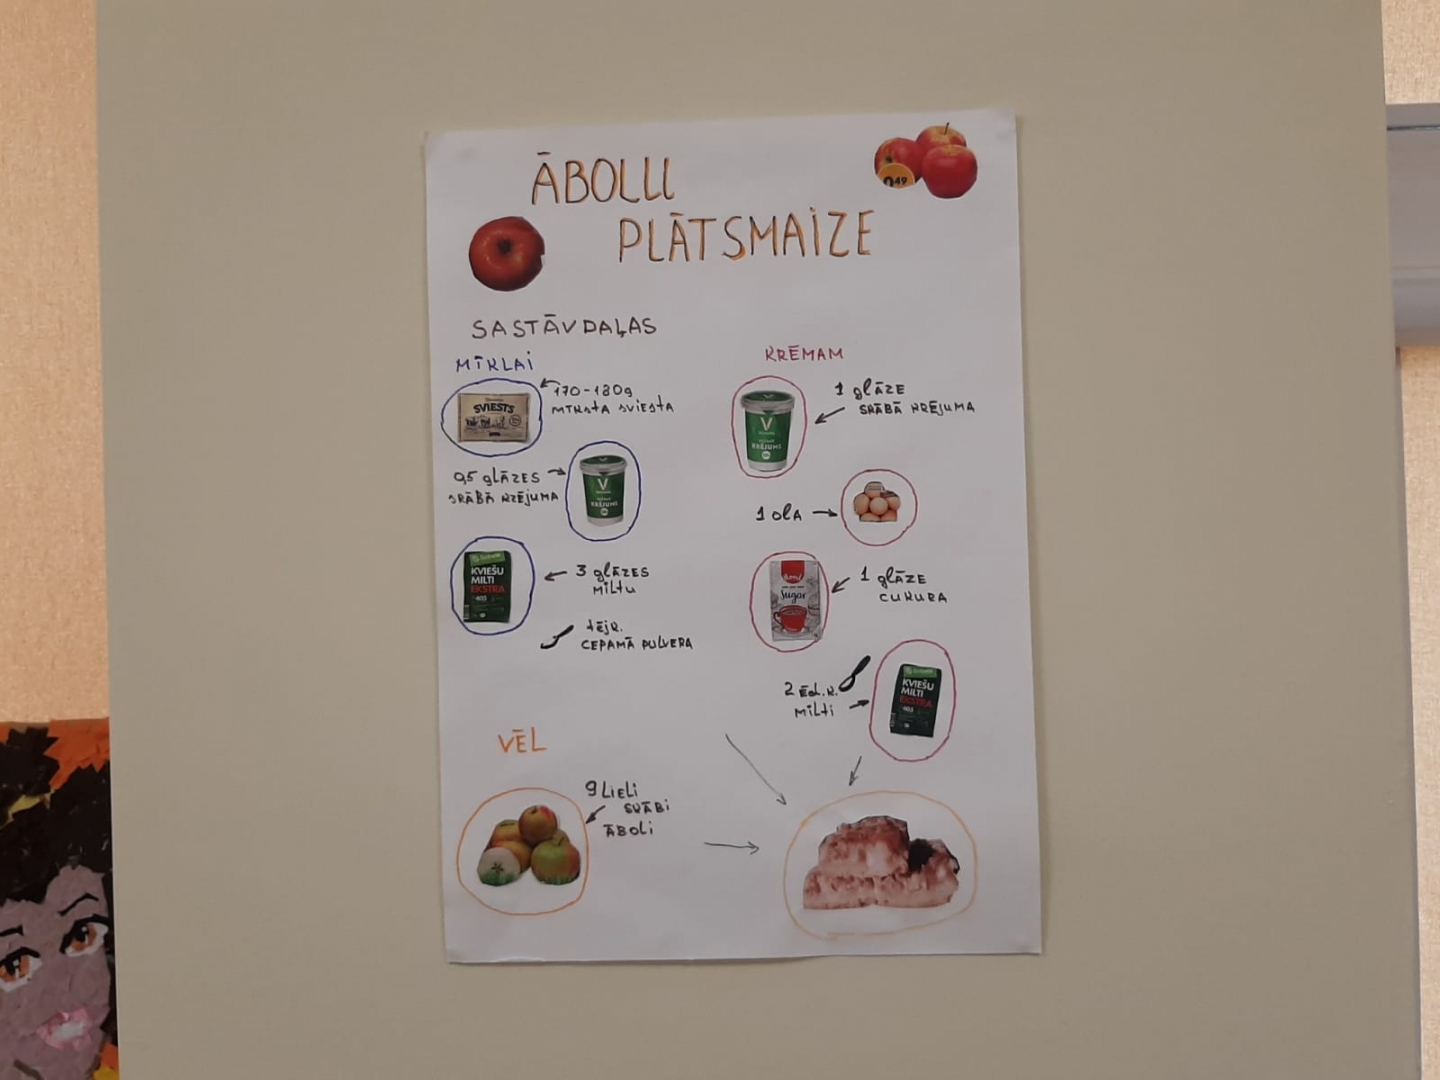 ĀBOLU
PLĀTSMAIZE
49
SASTĀVDAĻAS
MĪKLAI
170-180g
MĪKSTA SVIESTA
SVIESTS
0,5 glĀZES
SKĀBĀ KRĒJUMA
V
KRĒJUMS
KVIEŠU
MILTI
EKSTRA
405
3 glĀZES
MILTU
TĒJK.
CEPAMĀ PULVERA
KRĒMAM
1 glĀZE
SKĀBĀ KRĒJUMA
V
KRĒJUMS
1 OLA
Sugar
1 glĀZE
CUKURA
2 ĒD.K.
MILTI
KVIEŠU
MILTI
EKSTRA
405
VĒL
9 LIELI
SKĀBI
ĀBOLI